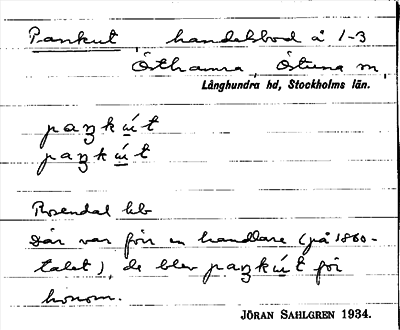 Pankut, handelsbod å 1-3
Östhamra, Östuna sn,
Långhundra hd, Stockholms län.
paŋkút
paŋkút
Rosendal hb
Där var förr en handlare (på 1860-
talet), de blev paŋkút för
honom.
JÖRAN SAHLGREN 1934.